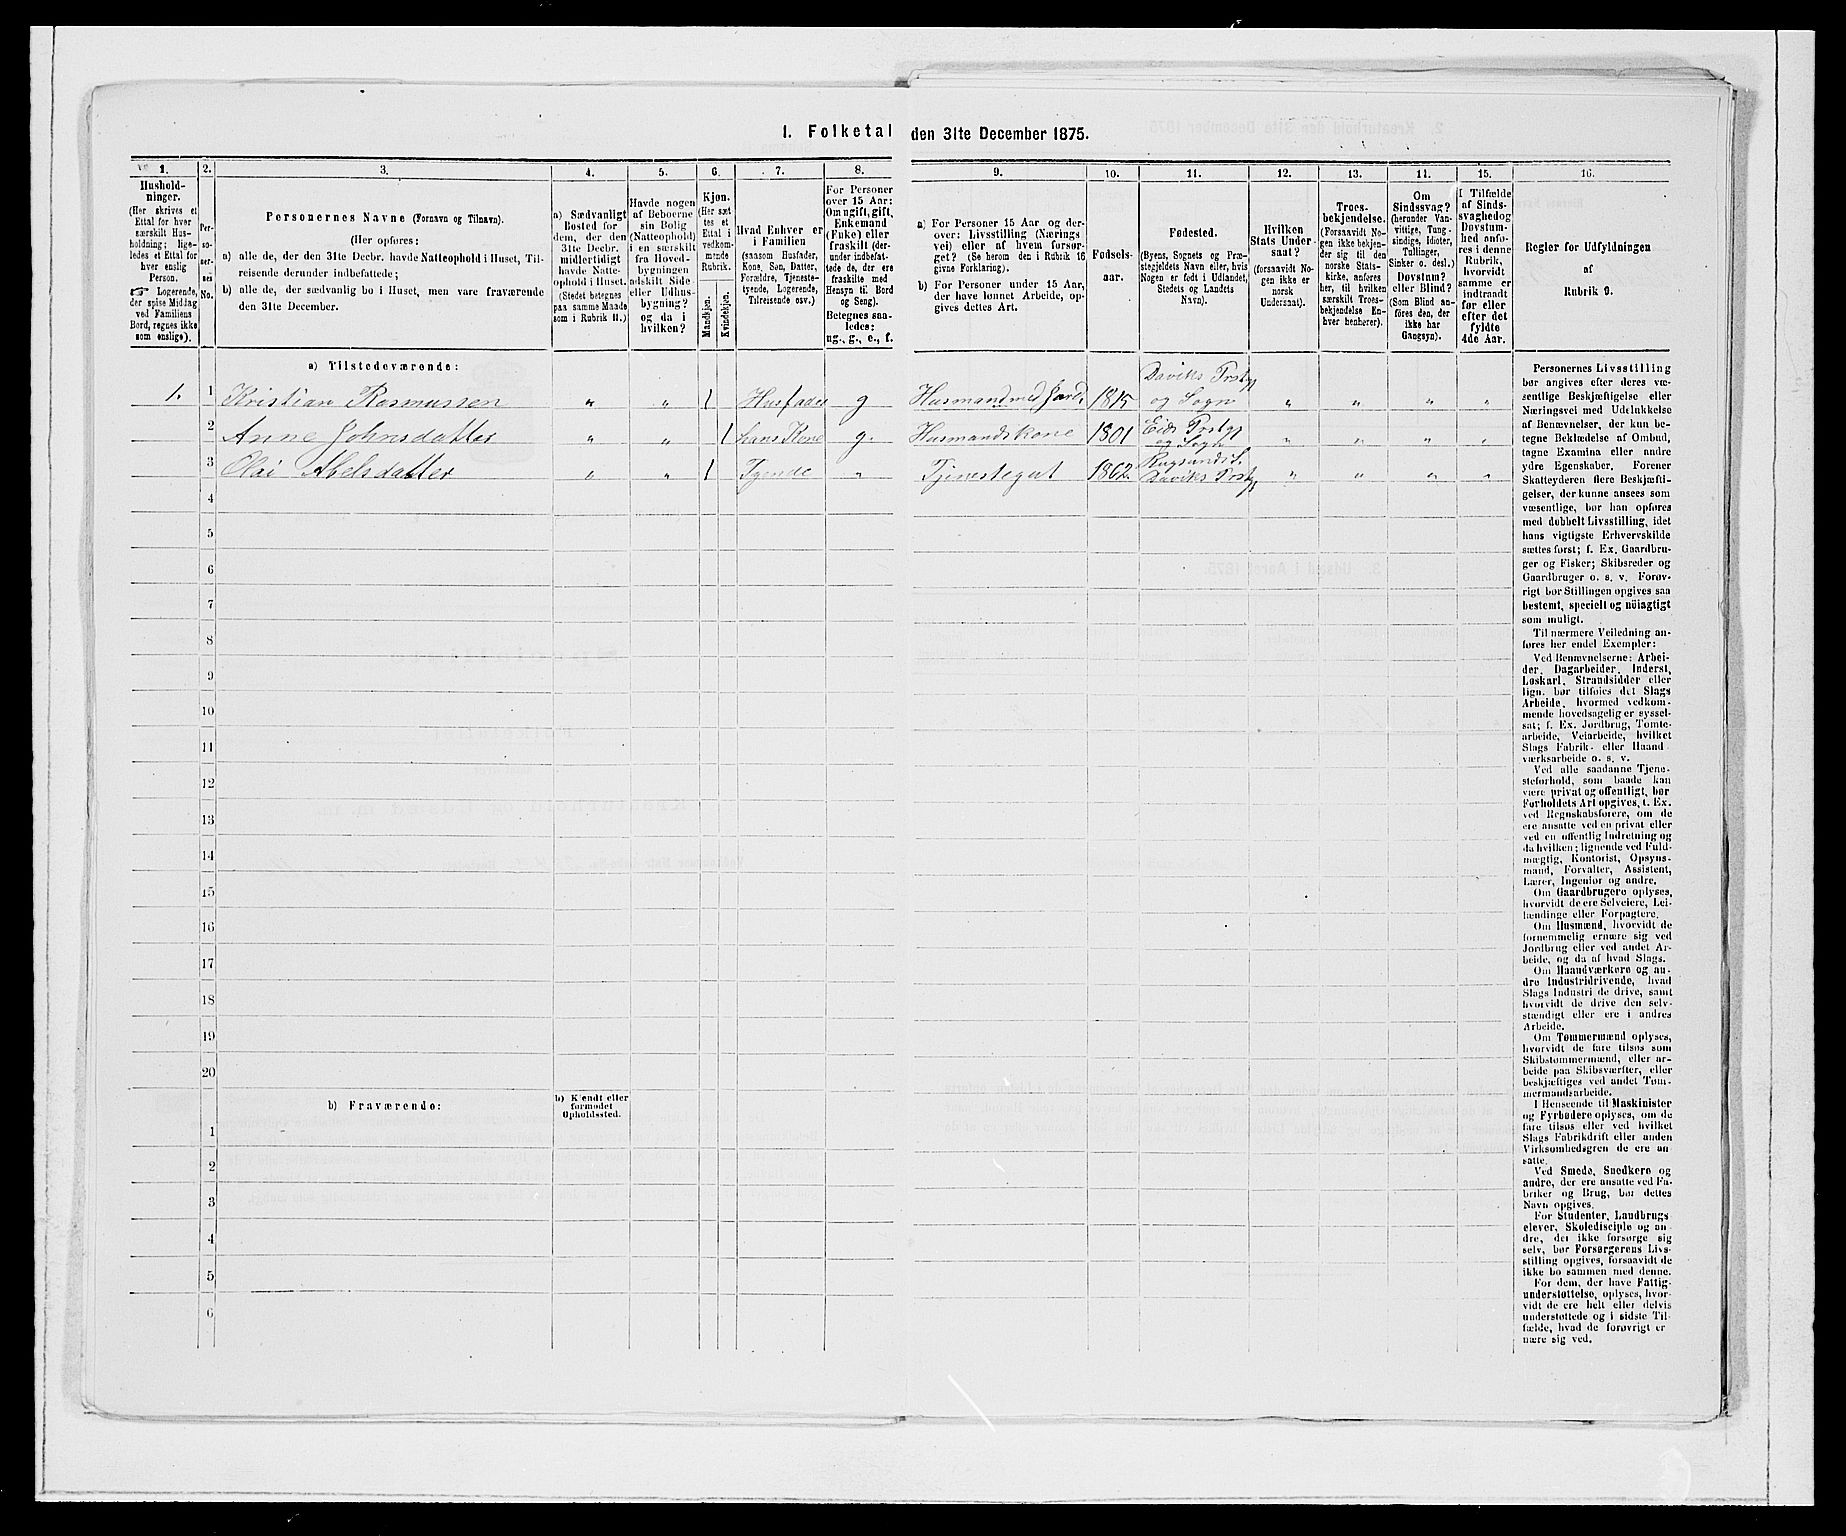 I. Folketal den 31te December 1875.
1. 2. 3. 4. 5. 6. 7. 8. 9. 10. 11. 12. 13. 14. 15. 16.
Hushold-
ninger.
(Her skrives et
Ettal for hver
særskilt Hus-
holdning; lige-
ledes et Ettal for
hver enslig
Person.
☞ Logerende,
der spise Middag
ved Familiens
Bord, regnes ikke
som enslige).
Per-
so-
ner-
nes
No.
Personernes Navne (Fornavn og Tilnavn).
(Her opføres:
a) alle de, der den 31te Decbr. havde Natteophold i Huset, Til-
reisende derunder indbefattede;
b) alle de, der sædvanlig bo i Huset, men vare fraværende
den 31te December.
a) Sædvanligt
Bosted for
dem, der den
31te Decbr.
midlertidigt
havde Natte-
ophold i Huset.
(Stedet betegnes
paa samme Maade
som i Rubrik 11.)
Havde nogen
af Beboerne
sin Bolig
(Natteophold)
i en særskilt
fra Hoved-
bygningen
adskilt Side-
eller Udhus-
bygning?
og da i
hvilken?
Kjøn.
(Her sæt
tes et
Ettal i
vedkom-
mende
Rubrik.
Mandkjøn.
Kvindekjøn.
Hvad Enhver er
i Familien
(saasom Husfader,
Kone, Søn, Datter,
Forældre, Tjeneste-
tyende, Logerende,
Tilreisende osv.)
For Personer
over 15 Aar:
Om ugift, gift,
Enkemand
(Enke) eller
fraskilt (der-
under indbefat-
tede de, der ere
fraskilte med
Hensyn til Bord
og Seng).
Betegnes saa-
ledes:
ug., g., e., f.
a) For Personer 15 Aar og der-
over: Livsstilling (Nærings
vei) eller af hvem forsør-
get? (Se herom den i Rubrik 16
givne Forklaring).
b) For Personer under 15 Aar,
der have lønnet Arbeide, op-
gives dettes Art.
Fødsels-
aar.
Fødested.
(Byens, Sognets og Præ-
stegjeldets Navn eller, hvis
Nogen er født i Udlandet,
Stedets og Landets
Navn).
Hvilken
Stats Under-
saat?
(forsaavidt No-
gen ikke er
norsk
Undersaat).
Troes-
bekjendelse.
(Forsaavidt No-
gen ikke bekjen-
der sig til den
norske Stats-
kirke, anføres
her, til hvilken
særskilt Troes-
bekjendelse En-
hver henhører).
Om
Sindssvag?
(herunder Van-
vittige, Tung-
sindige, Idioter,
Tullinger,
Sinker o. desl.)
Døvstum?
eller Blind?
(Som Blind an-
føres den, der
ikke har
Gangsyn).
I Tilfælde
af Sinds-
svaghed og
Døvstum-
hed anfø-
res i denne
Rubrik,
hvorvidt
samme er
indtraadt
før eller
efter det
fyldte
4de Aar.
Regler for Udfyldningen
af
Rubrik 9.
a) Tilstedeværende:
1. 1 Kristian Rasmussen " " 1 Husfader g Husmand med Jord. 1815 Daviks Prstgj og Sogn " " " "
2 Anne Johnsdatter " " 1 hans Kone g. Husmandskone 1801 Eids Prstgj og Sogn " " " "
3 Olai Abelsdatter " " 1 Tyende " Tjenestegut 1862. Rugsunds S. Daviks Prstgj " " " "
4
5
6
7
8
9
10
11
12
13
14
15
16
17
18
19
20
b) Fraværende:
b) Kjendt eller
formodet
Opholdssted.
1
2
3
4
5
6
Personernes Livsstilling
bør angives efter deres væ-
sentlige Beskjæftigelse eller
Næringsvei med Udelukkelse
af Benævnelser, der kun be-
tegne Beklædelse af Ombud,
tagne Examina eller andre
ydre Egenskaber. Forener
Skatteyderen flere Beskjæfti-
gelser, der kunne ansees som
væsentlige, bør han opføres
med dobbelt Livsstilling, idet
hans vigtigste Erhvervskilde
sættes først; f. Ex. Gaardbru-
ger og Fisker; Skibsreder og
Gaardbruger o. s. v. Forøv-
rigt bør Stillingen opgives saa
bestemt, specielt og nøiagtigt
som muligt.
Til nærmere Veiledning an-
føres her endel Exempler:
Ved Benævnelserne: Arbei-
der, Dagarbeider, Inderst,
Løskarl, Strandsidder eller
lign. bør tilføies det Slags
Arbeide, hvormed vedkom-
mende hovedsagelig er syssel-
sat; f. Ex. Jordbrug, Tomte-
arbeide, Veiarbeide, hvilket
Slags Fabrik- eller Haand-
værksarbeide o. s. v.
Ved alle saadanne Tjene-
steforhold, som baade kan
være privat og offentligt, bør
Forholdets Art opgives, f. Ex.
ved Regnskabsførere, om de
ere ansatte ved en privat eller
ved en offentlig Indretning og
da hvilken; lignende ved Fuld-
mægtig, Kontorist, Opsyns-
mand, Forvalter, Assistent,
Lærer, Ingeniør og andre.
Om Gaardbrugere oplyses,
hvorvidt de ere Selveiere, Lei-
lændinge eller Forpagtere.
Om Husmænd, hvorvidt de
fornemmelig ernære sig ved
Jordbrug eller ved andet Ar-
beide, og da af hvad Slags.
Om Haandværkere og an-
dre Industridrivende, hvad
Slags Industri de drive, samt
hvorvidt de drive den selv-
stændigt eller ere i andres
Arbeide.
Om Tømmermænd oplyses,
hvorvidt de fare tilsøs som
Skibstømmermænd, eller ar-
beide paa Skibsværfter, eller
beskjæftiges ved andet Tøm-
mermandsarbeide.
I Henseende til Maskinister
og Fyrbødere oplyses, om de
fare tilsøs eller ved hvilket
Slags Fabrikdrift eller anden
Virksomhedsgren de ere an-
satte.
Ved Smede, Snedkere og
andre, der ere ansatte ved Fa-
briker og Brug, bør dettes
Navn opgives.
For Studenter, Landbrugs-
elever, Skoledisciple og an-
dre, der ikke forsørge sig
selv, bør Forsørgerens Livs-
stilling opgives, forsaavidt de
ikke bo sammen med denne.
For dem, der have Fattig-
understøttelse, oplyses, hvor-
vidt de ere helt eller delvis
understøttede og i sidste Til-
fælde, hvad de forøvrigt er-
nære sig ved.